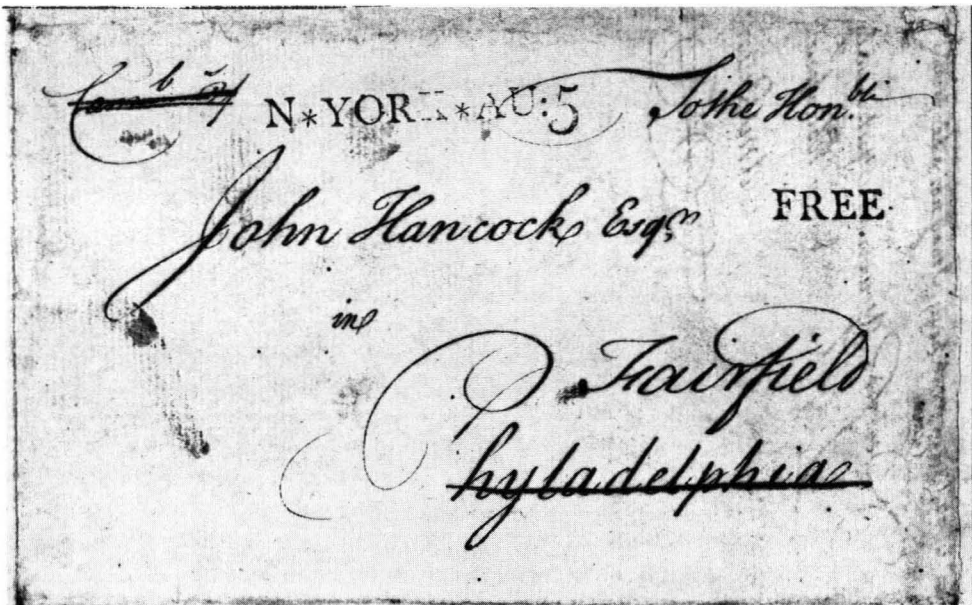 N*YORK*AU:5 To the Hon.ble
John Hancock Esqr.
FREE
in
Fairfield
Phyladelphia